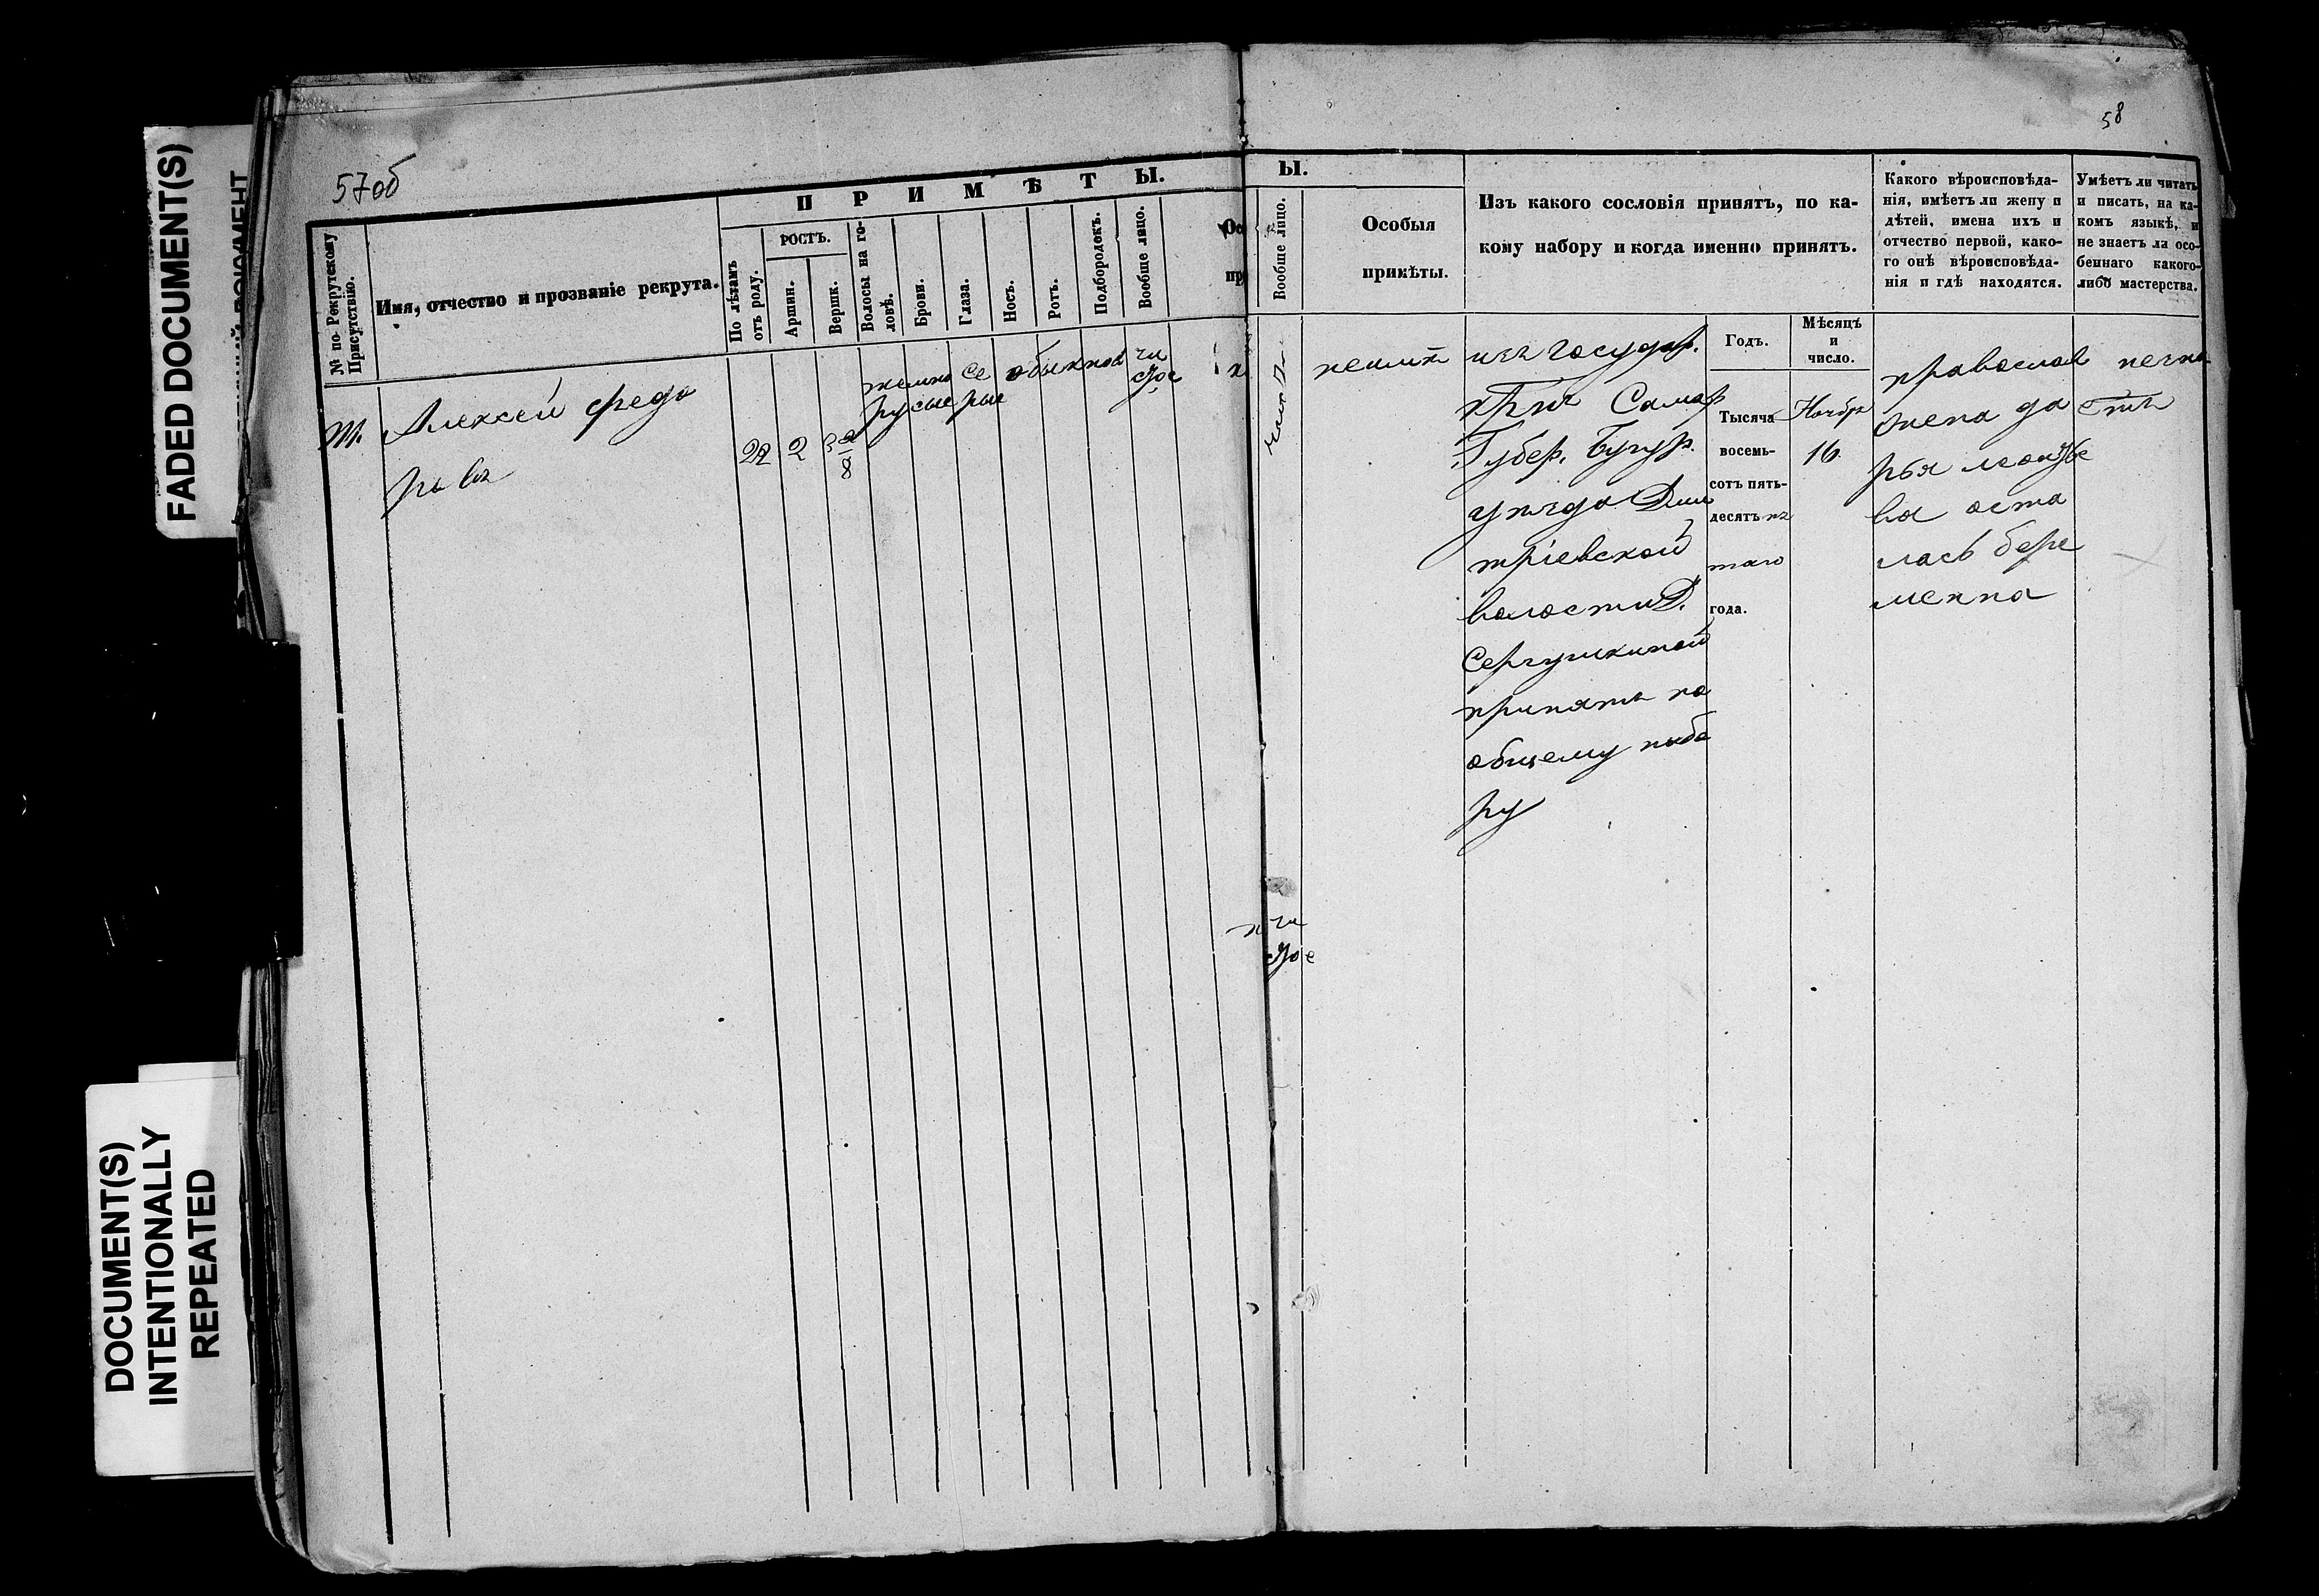 FADED DOCUMENT(S)
DOCUMENT(S)
INTENTIONALLY
REPEATED
57об
П Р И М Ѣ Т Ы.
№ по Рекрутскому
Присутствію.
Имя, отчество и прозваніе рекрута.
По лѣтамъ
отъ роду.
РОСТЪ.
Аршин.
Вершк.
Волосы на го-
ловѣ.
Брови.
Глаза.
Носъ.
Ротъ.
Подбородокъ.
Вообще лицо.
Алексей Федо
ровъ
22
2
3 2/8
темно
русые
се
рые
обыкнов
чи
стое
58
Ы.
Вообще лицо.
Особыя
примѣты.
Изъ какого сословія принятъ, по ка-
кому набору и когда именно принятъ.
Какого вѣроисповѣда-
нія, имѣетъ ли жену и
дѣтей, имена ихъ и
отчество первой, како-
го онѣ вѣроисповѣда-
нія и гдѣ находятся.
Умѣетъ ли читать
и писать, на ка-
комъ языкѣ, и
не знаетъ ли осо-
беннаго какого-
либо мастерства.
Годъ.
Мѣсяцъ
и
число.
изъ государ.
Самар
Губер. Бугур.
уѣзда Дми
тріевской
волости Д.
Сергушкиной
принятъ по
общему набо
ру
Тысяча
восемь-
сотъ пять-
десятъ пя
таго
года.
Ноябр
16
православ
жена да
рья
ва оста
лась бере
менна
чи
стое